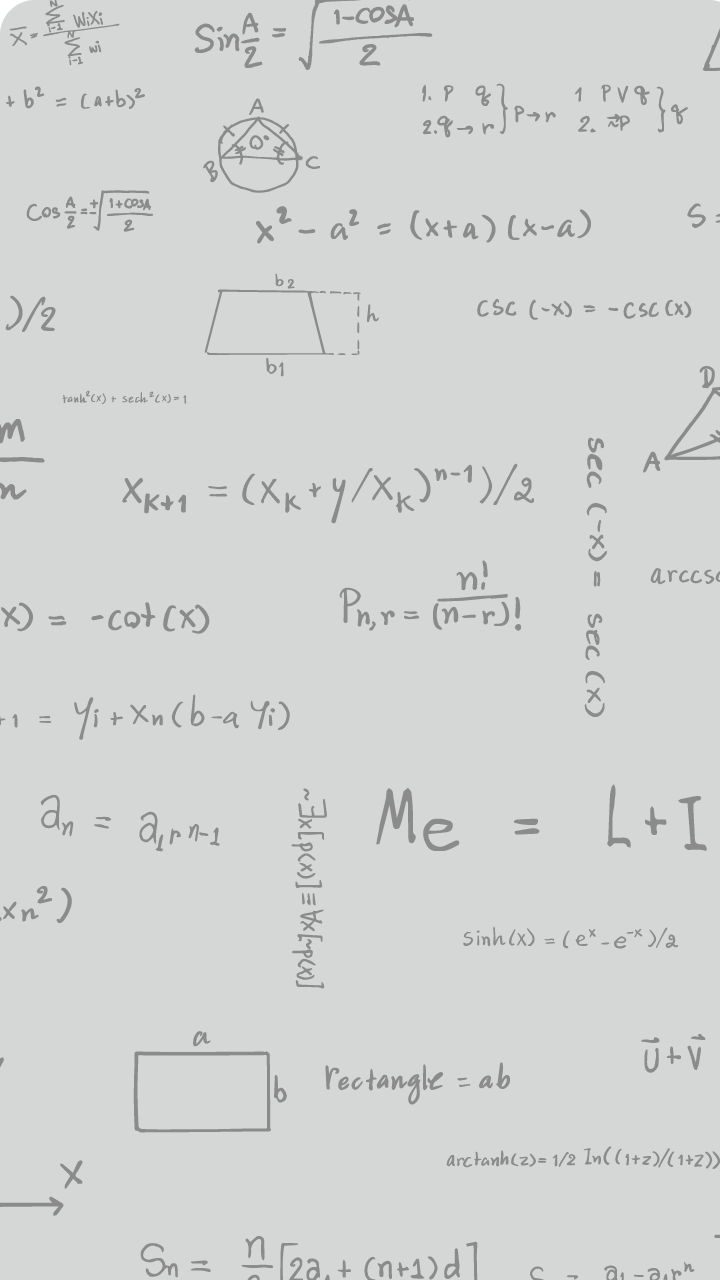 x̄ = Σ(N, i-1) WiXi / Σ(N, i-1) wi
Sin A/2 = √(1-COSA / 2)
+ b² = (a+b)²
A
O°
B C
1. P q } P→r
2. q → r
1 P V q } q
2. ⇁P
Cos A/2 = ±√(1+COSA / 2)
x² - a² = (x+a) (x-a)
S =
)/2
b2
h
b1
csc (-x) = - csc (x)
tanh²(x) + sech²(x) = 1
D
A
m
n
X_K+1 = (X_K + y/X_K)ⁿ⁻¹)/2
sec (-x) = sec (x)
arccsc
x) = -cot (x)
P_n,r = n! / (n-r)!
+1 = yi + xn (b-a yi)
a_n = a_1 r n-1
~∃x[p(x)] ≡ ∀x[~p(x)]
Me = L + I
xn²)
sinh(x) = (eˣ - e⁻ˣ)/2
a
b
rectangle = ab
U⃗ + V⃗
arctanh(z) = 1/2 In((1+z)/(1+z))
X
Sn = n [2a₁ + (n+1) d]
= a₁-a₁rⁿ